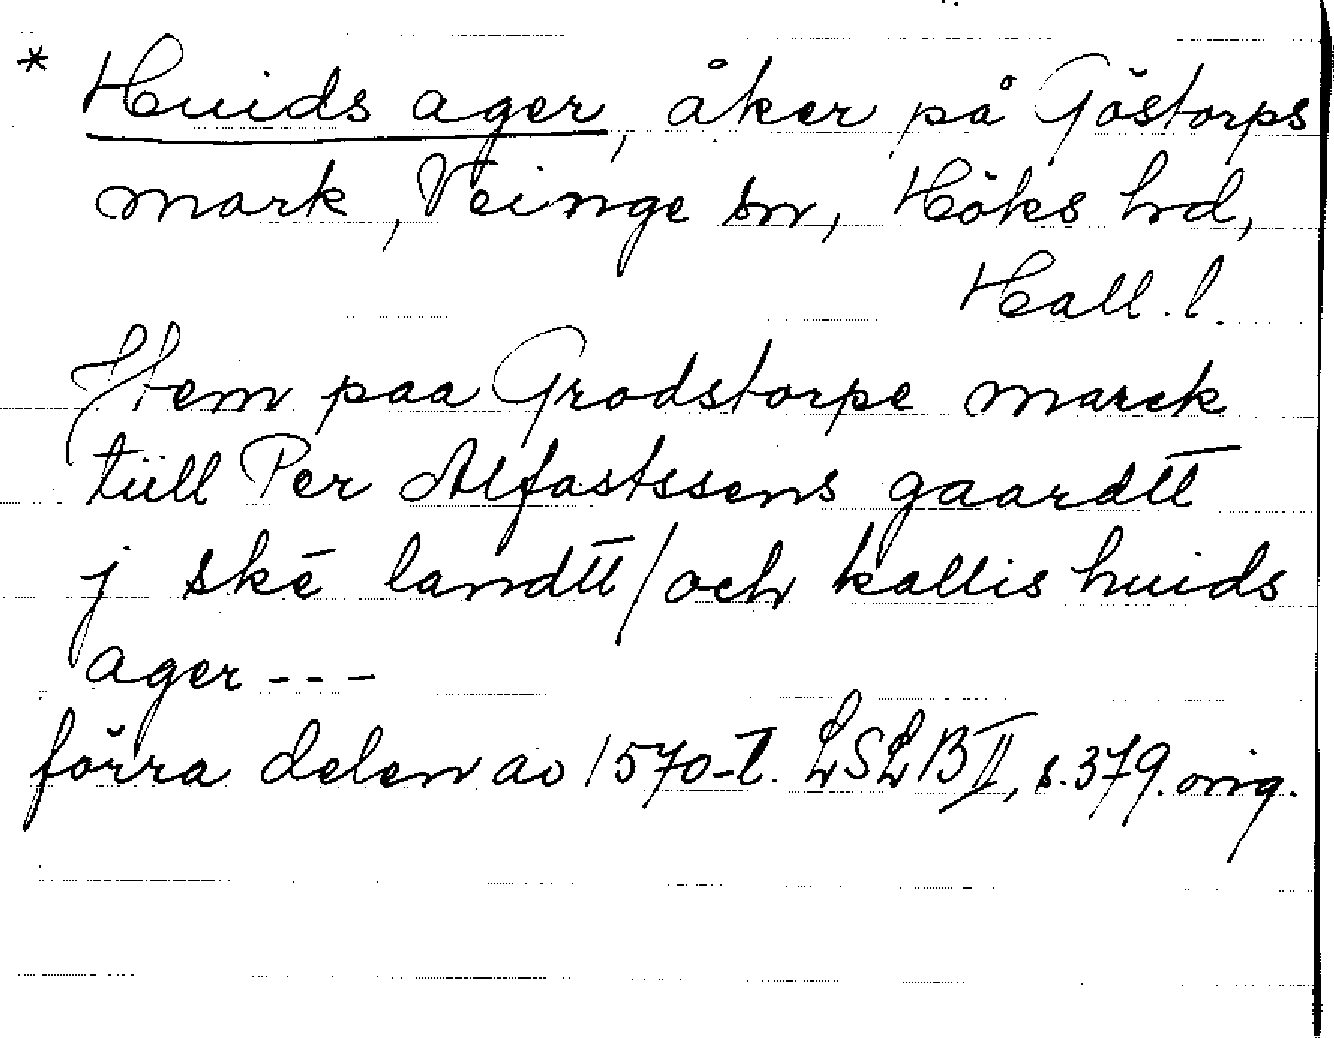 * Huids ager, åker på Göstorps
mark, Veinge sn, Höks hd,
Hall. l.
Jtem paa Grodstorpe marck
tiill Per Alfastssens gaardtt
j skē landtt/och kallis huids
ager ---
förra delen av 1570-t. LSLB II, s. 379. orig.